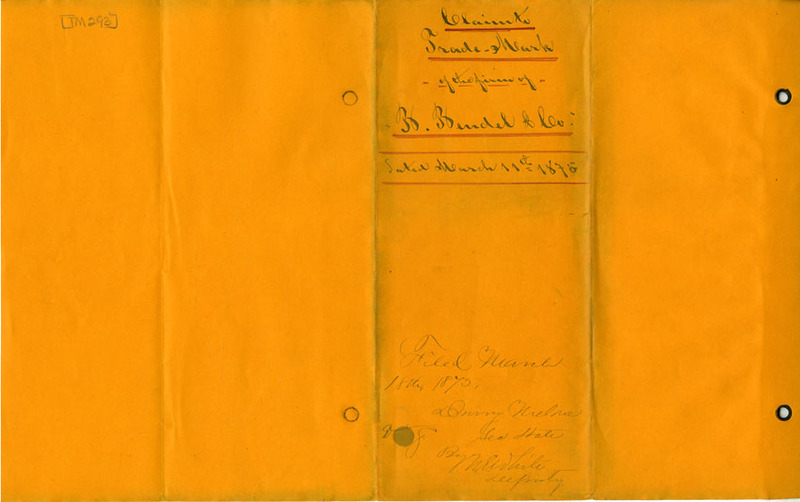 [TM293]
Claim to
Trade-Mark
- of the firm of -
B. Bendel & Co.
Dated March 11th 1875
Filed March
18th 1875.
Drury Melone
Sec State
By
Deputy